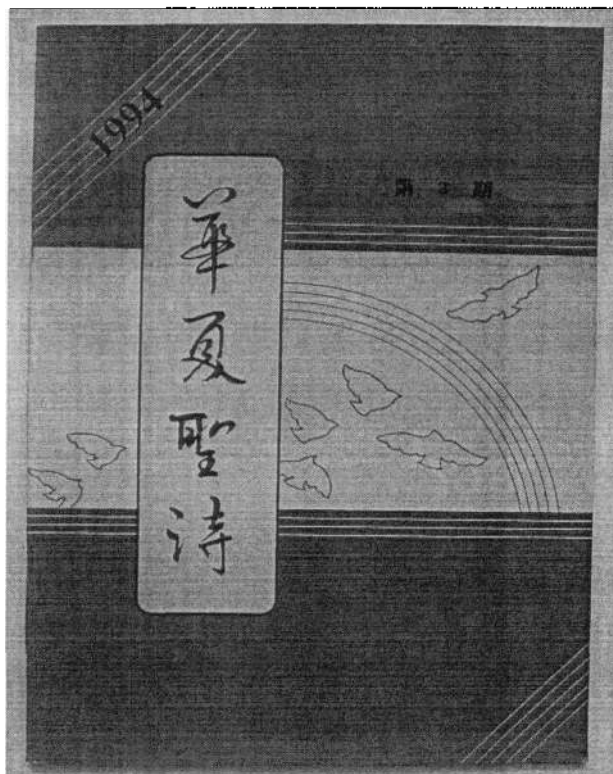 1994
第 3 期
華夏聖诗